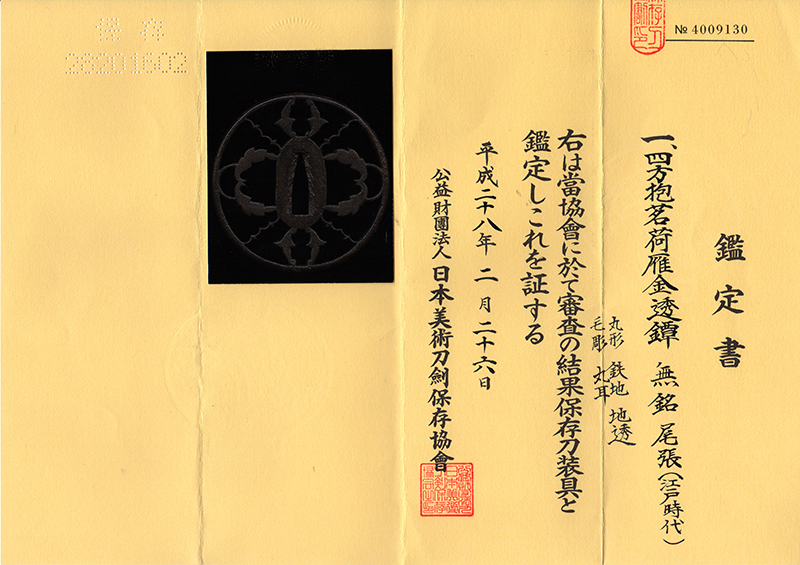 № 4009130
鑑定書
一、四方抱茗荷雁金透鐔 無銘 尾張(江戸時代)
丸形 鉄地 地透
毛彫 丸耳
右は當協會に於て審査の結果保存刀装具と
鑑定しこれを証する
平成二十八年二月二十六日
公益財團法人 日本美術刀劍保存協會
保存
28201602